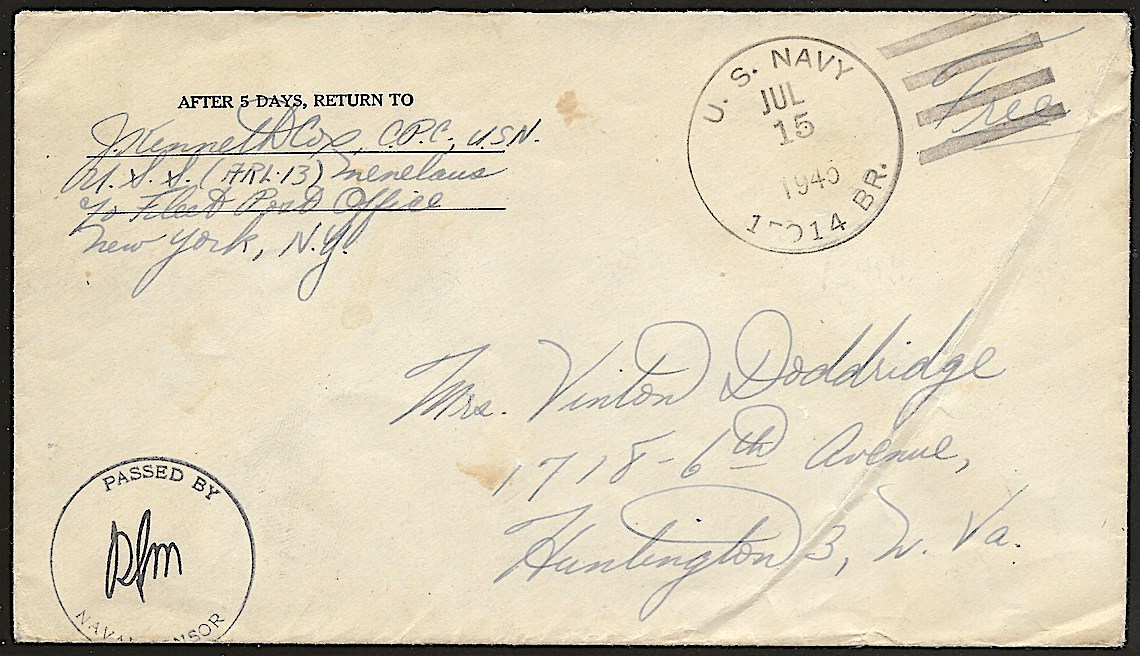 AFTER 5 DAYS, RETURN TO
J. Kenneth Cox, C.P.C., USN.
U.S.S. (ARL-13) Menelaus
c/o Fleet Post Office
New York, N.Y.
U. S. NAVY
JUL
15
1945
14 BR.
Free
Mrs. Vinton Doddridge
1718-6th Avenue,
Huntington 3, W. Va.
PASSED BY
NAVAL CENSOR